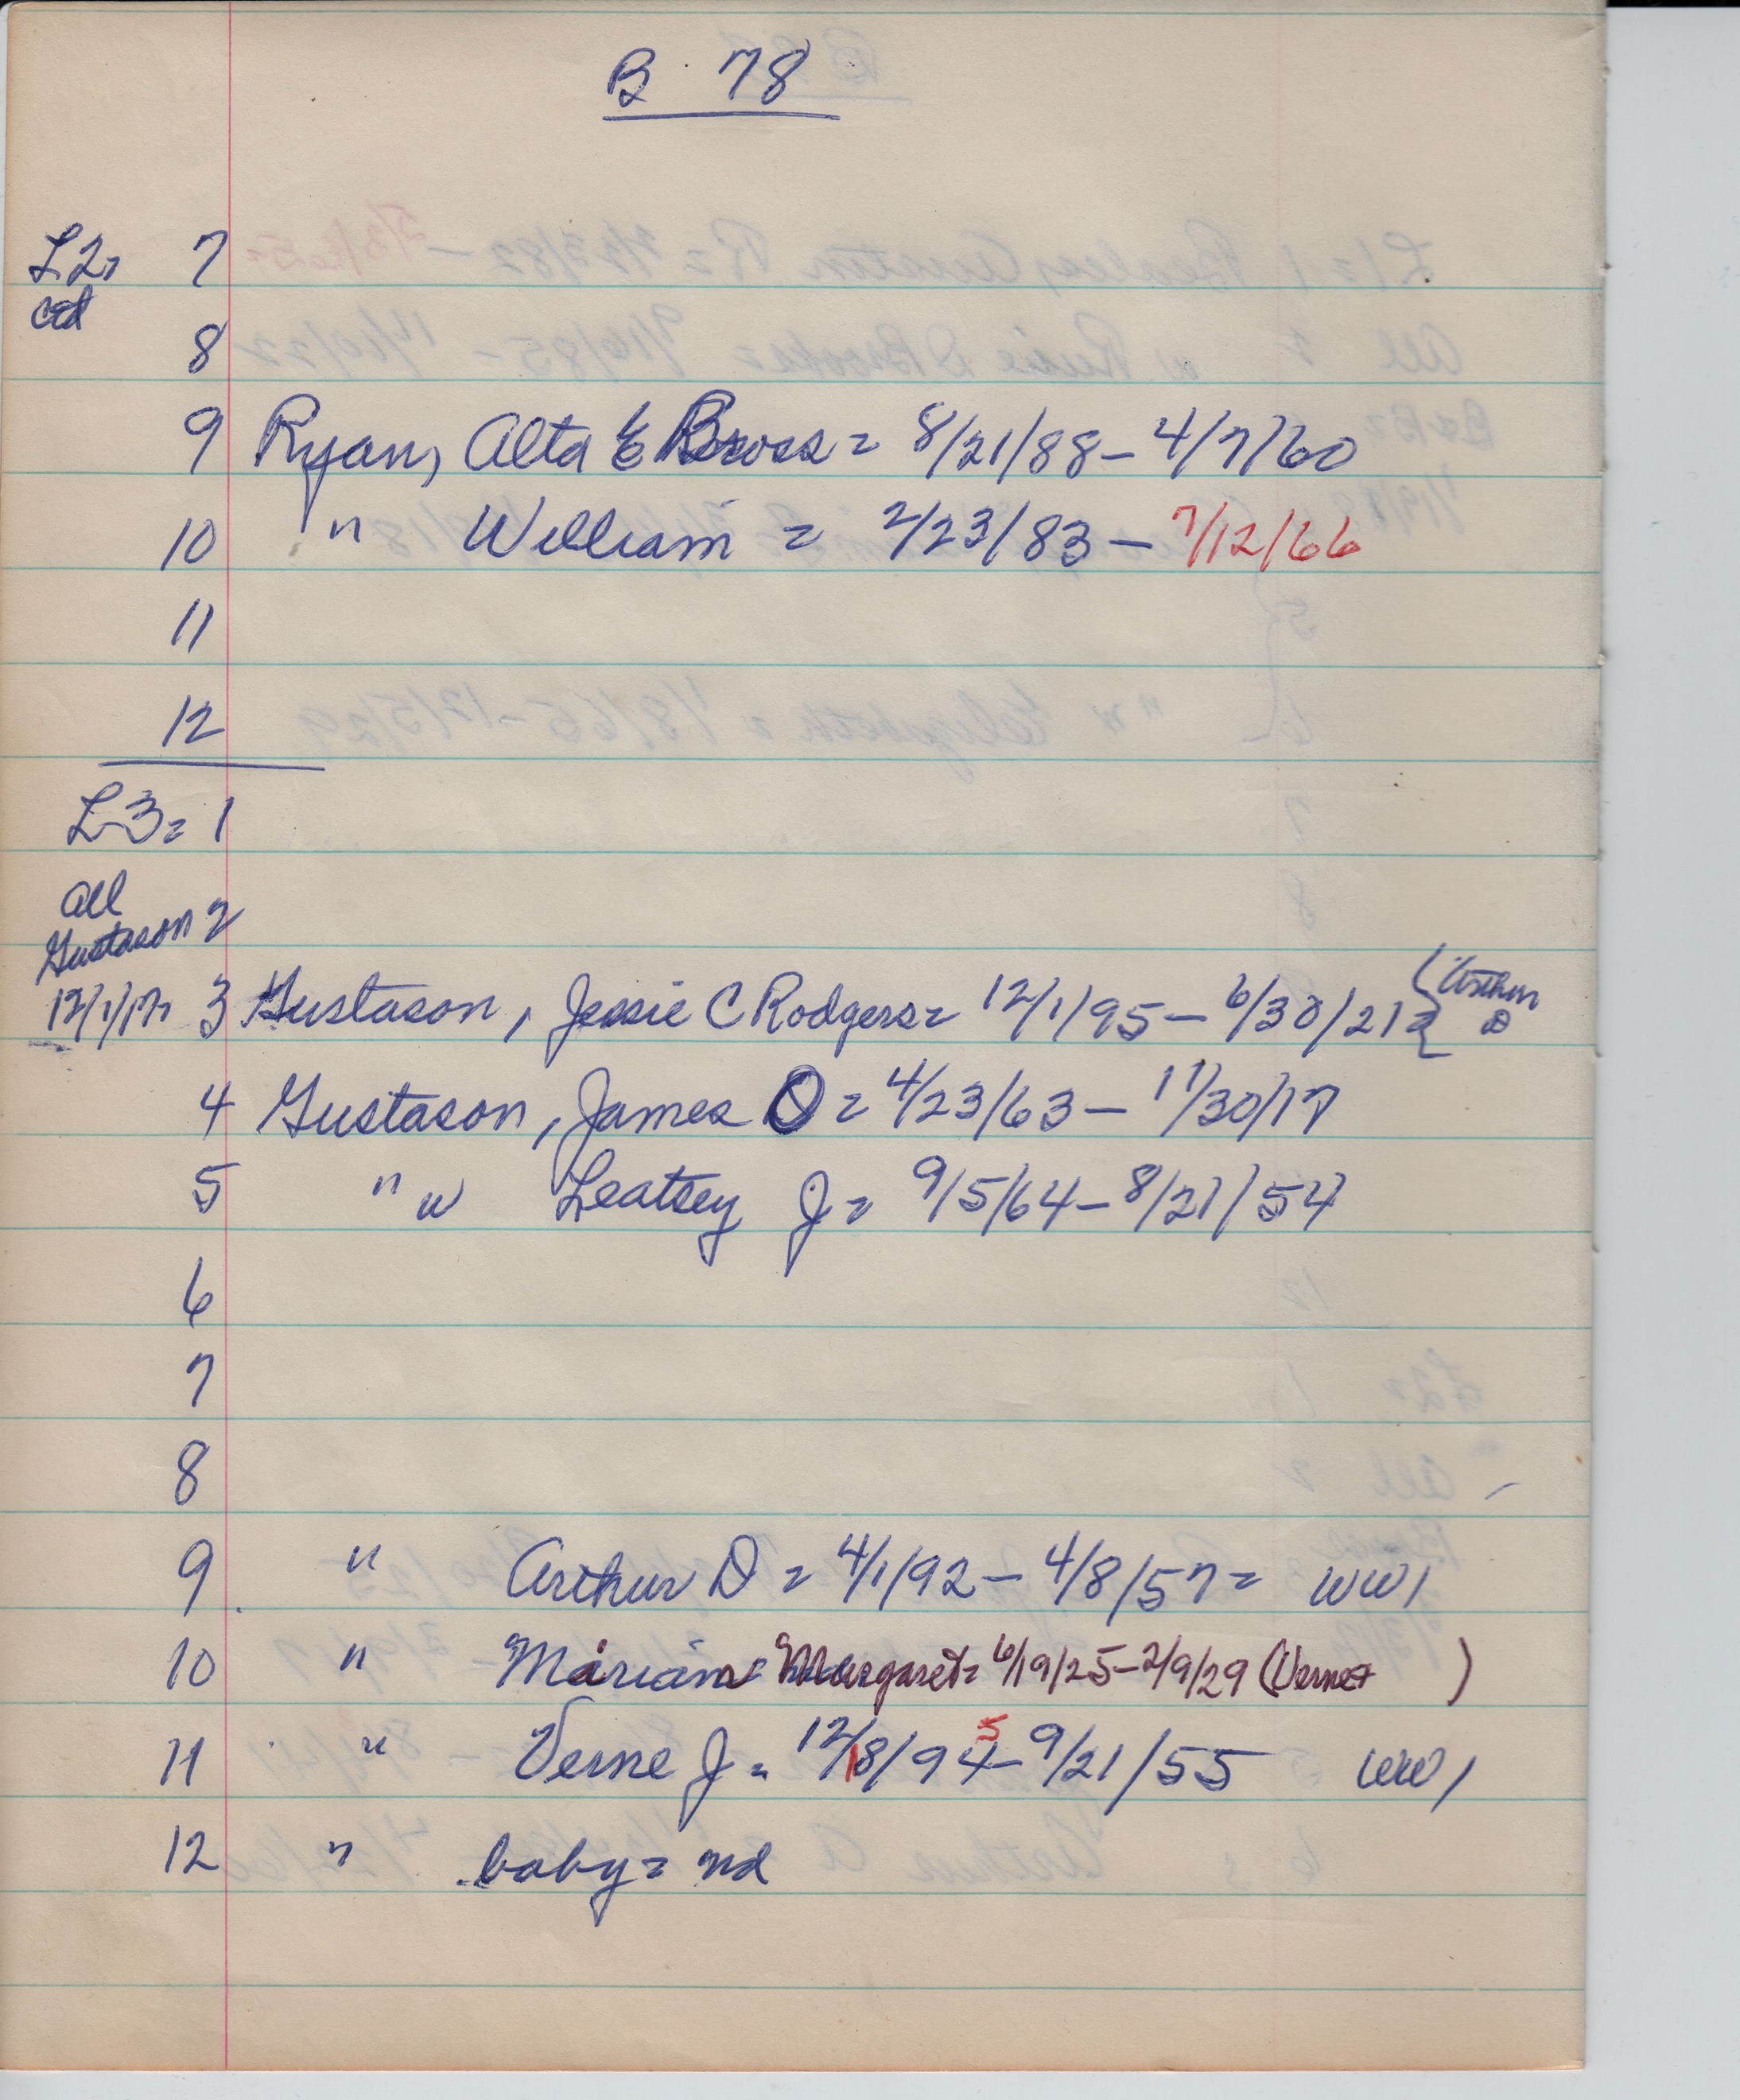 B 78
L2= 7
ctd
8
9 Ryan, Alta E Bross = 8/21/88 - 4/7/60
10 " William = 2/23/83 - 7/12/66
11
12
L3= 1
all
Gustason 2
12/1/17= 3 Gustason, Jessie C Rodgers = 12/1/95 - 6/30/21 = { Arthur D
4 Gustason, James O = 4/23/63 - 11/30/17
5 " w Leatsey J = 9/5/64 - 8/27/54
6
7
8
9 " Arthur D = 4/1/92 - 4/8/57 = WW1
10 " Marian Margaret = 6/19/25 - 2/9/29 (Verne + )
11 " Verne J = 12/18/94 5 - 9/21/55 WW1
12 " baby = nd